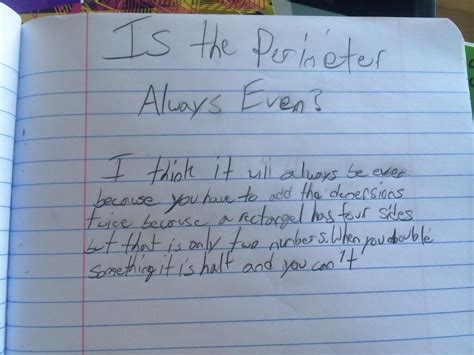 Is the Perimeter
Always Even?
I think it will always be even
because you have to add the demersions
twice because a rectangel has four sides
but that is only two numbers. When you double
something it is half and you can't